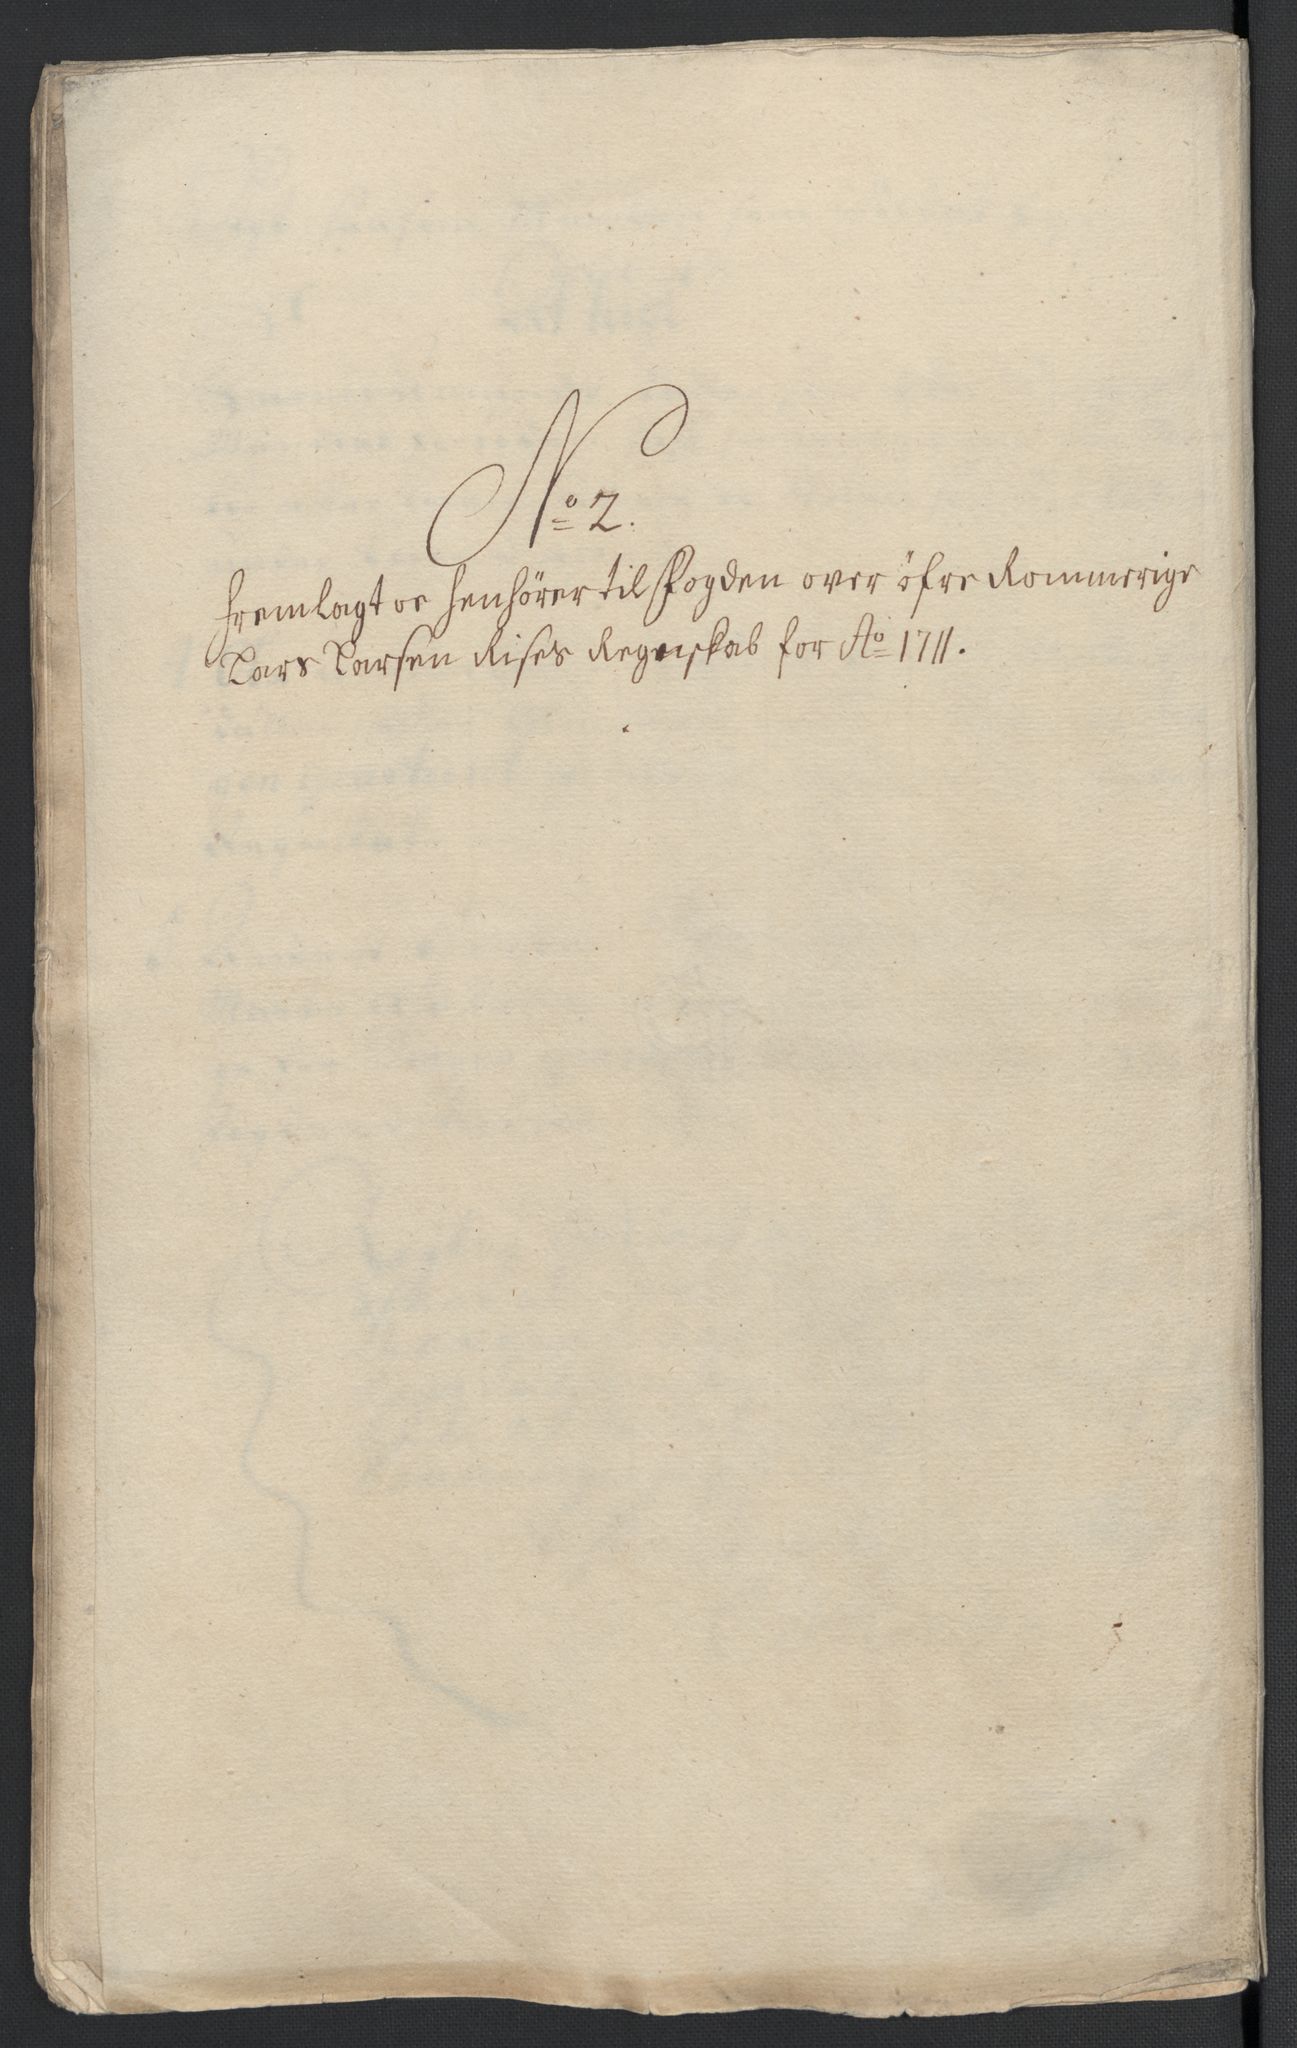 No 2.
fremlagt oc henhörer til Fogden over öfre Rommerige
Lars Larsen Rises Regenskab for Ao 1711.